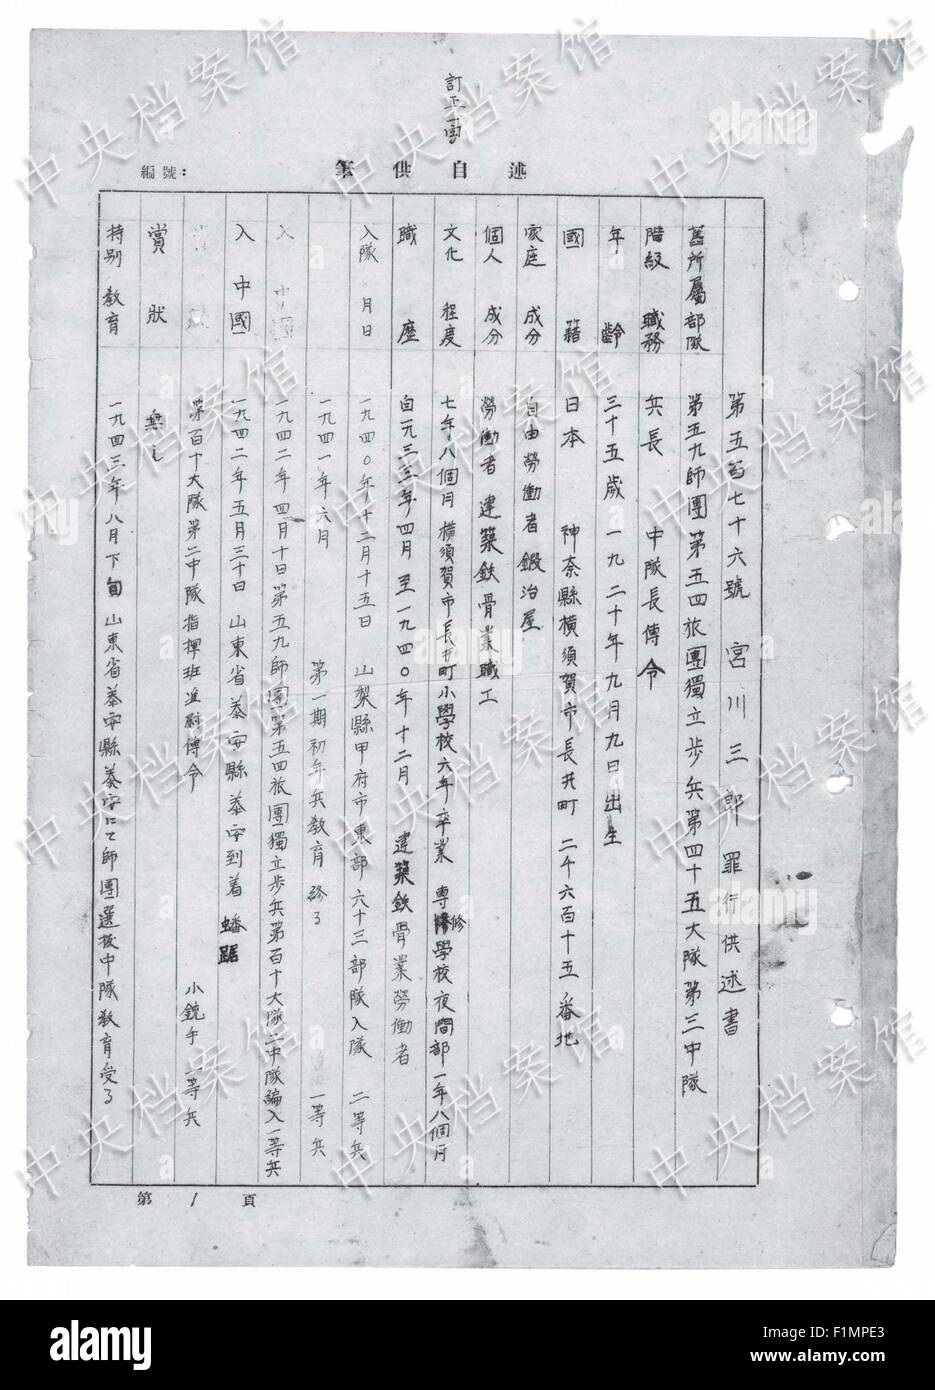 訂正一字
述自供筆
編號：
第五百七十六號 宮川三郎 罪行供述書
舊所屬部隊 第五九師團第五四旅團獨立步兵第四十五大隊第三中隊
階級 職務 兵長 中隊長傳令
年齡 三十五歲 一九二十年九月九日出生
國籍 日本 神奈縣横須賀市長井町 二千六百十五番地
家庭 成分 自由勞働者 鍛冶屋
個人 成分 勞働者 建築鉄骨業職工
文化 程度 七年八個月 横須賀市長井町小學校六年卒業 專修學校夜間部一年八個月
職歴 自一九三三年四月 至一九四〇年十二月 建築鉄骨業勞働者
入隊 月日 一九四〇年十二月十五日 山梨縣甲府市東部六十三部隊入隊 二等兵
一九四一年六月 第一期初年兵教育終了 一等兵
一九四二年四月十日第五九師團第五四旅團獨立步兵第百十大隊二中隊編入一等兵
入中國 一九四二年五月三十日 山東省泰安縣泰安到着 蟠踞
第百十大隊第二中隊指揮班 傳令 小銃手 一等兵
賞狀 無し
特別 教育 一九四三年八月下旬 山東省泰安縣泰安にて師團選抜中隊教育受了
第 1 頁
中央档案馆
alamy
Image ID: F1MPE3
www.alamy.com